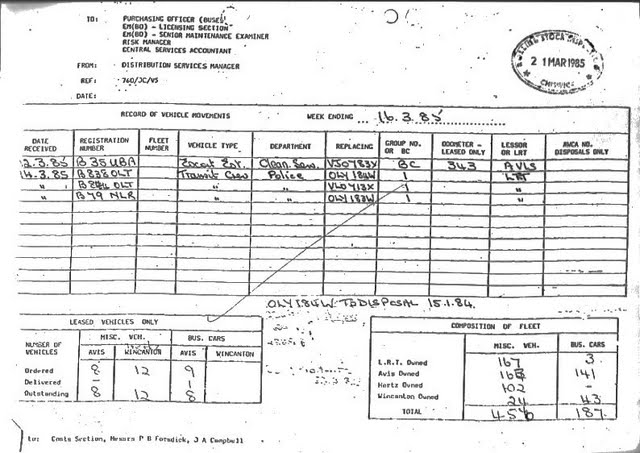 TO: PURCHASING OFFICER (BUSES)
EM(BO) - LICENSING SECTION
EM(BO) - SENIOR MAINTENANCE EXAMINER
RISK MANAGER
CENTRAL SERVICES ACCOUNTANT
FROM: DISTRIBUTION SERVICES MANAGER
REF: 760/JC/VS
DATE:
21 MAR 1985
CHISWICK
RECORD OF VEHICLE MOVEMENTS WEEK ENDING 16.3.85
DATE RECEIVED REGISTRATION NUMBER FLEET NUMBER VEHICLE TYPE DEPARTMENT REPLACING GROUP NO. OR BC ODOMETER - LEASED ONLY LESSOR OR LRT DISPOSALS ONLY
12.3.85 B35 UBA Escort Est. VSO783X BC 343 AVIS
14.3.85 B838 OLT Transit Crew Police OLY 184W 1 LRT
" OLT " " 1 "
" B79 NLR " OLY 183W 1 "
OLY 184W TO DISPOSAL 15.1.84.
LEASED VEHICLES ONLY
NUMBER OF VEHICLES MISC. VEH. BUS. CARS
AVIS WINCANTON AVIS WINCANTON
Ordered 8 12 9
Delivered - 1
Outstanding 8 12 8
COMPOSITION OF FLEET
MISC. VEH. BUS. CARS
L.R.T. Owned 167 3
Avis Owned 141
Hertz Owned 102 -
Wincanton Owned 24 43
TOTAL 456 187
to: Costs Section, Messrs P B Fosdick, J A Campbell